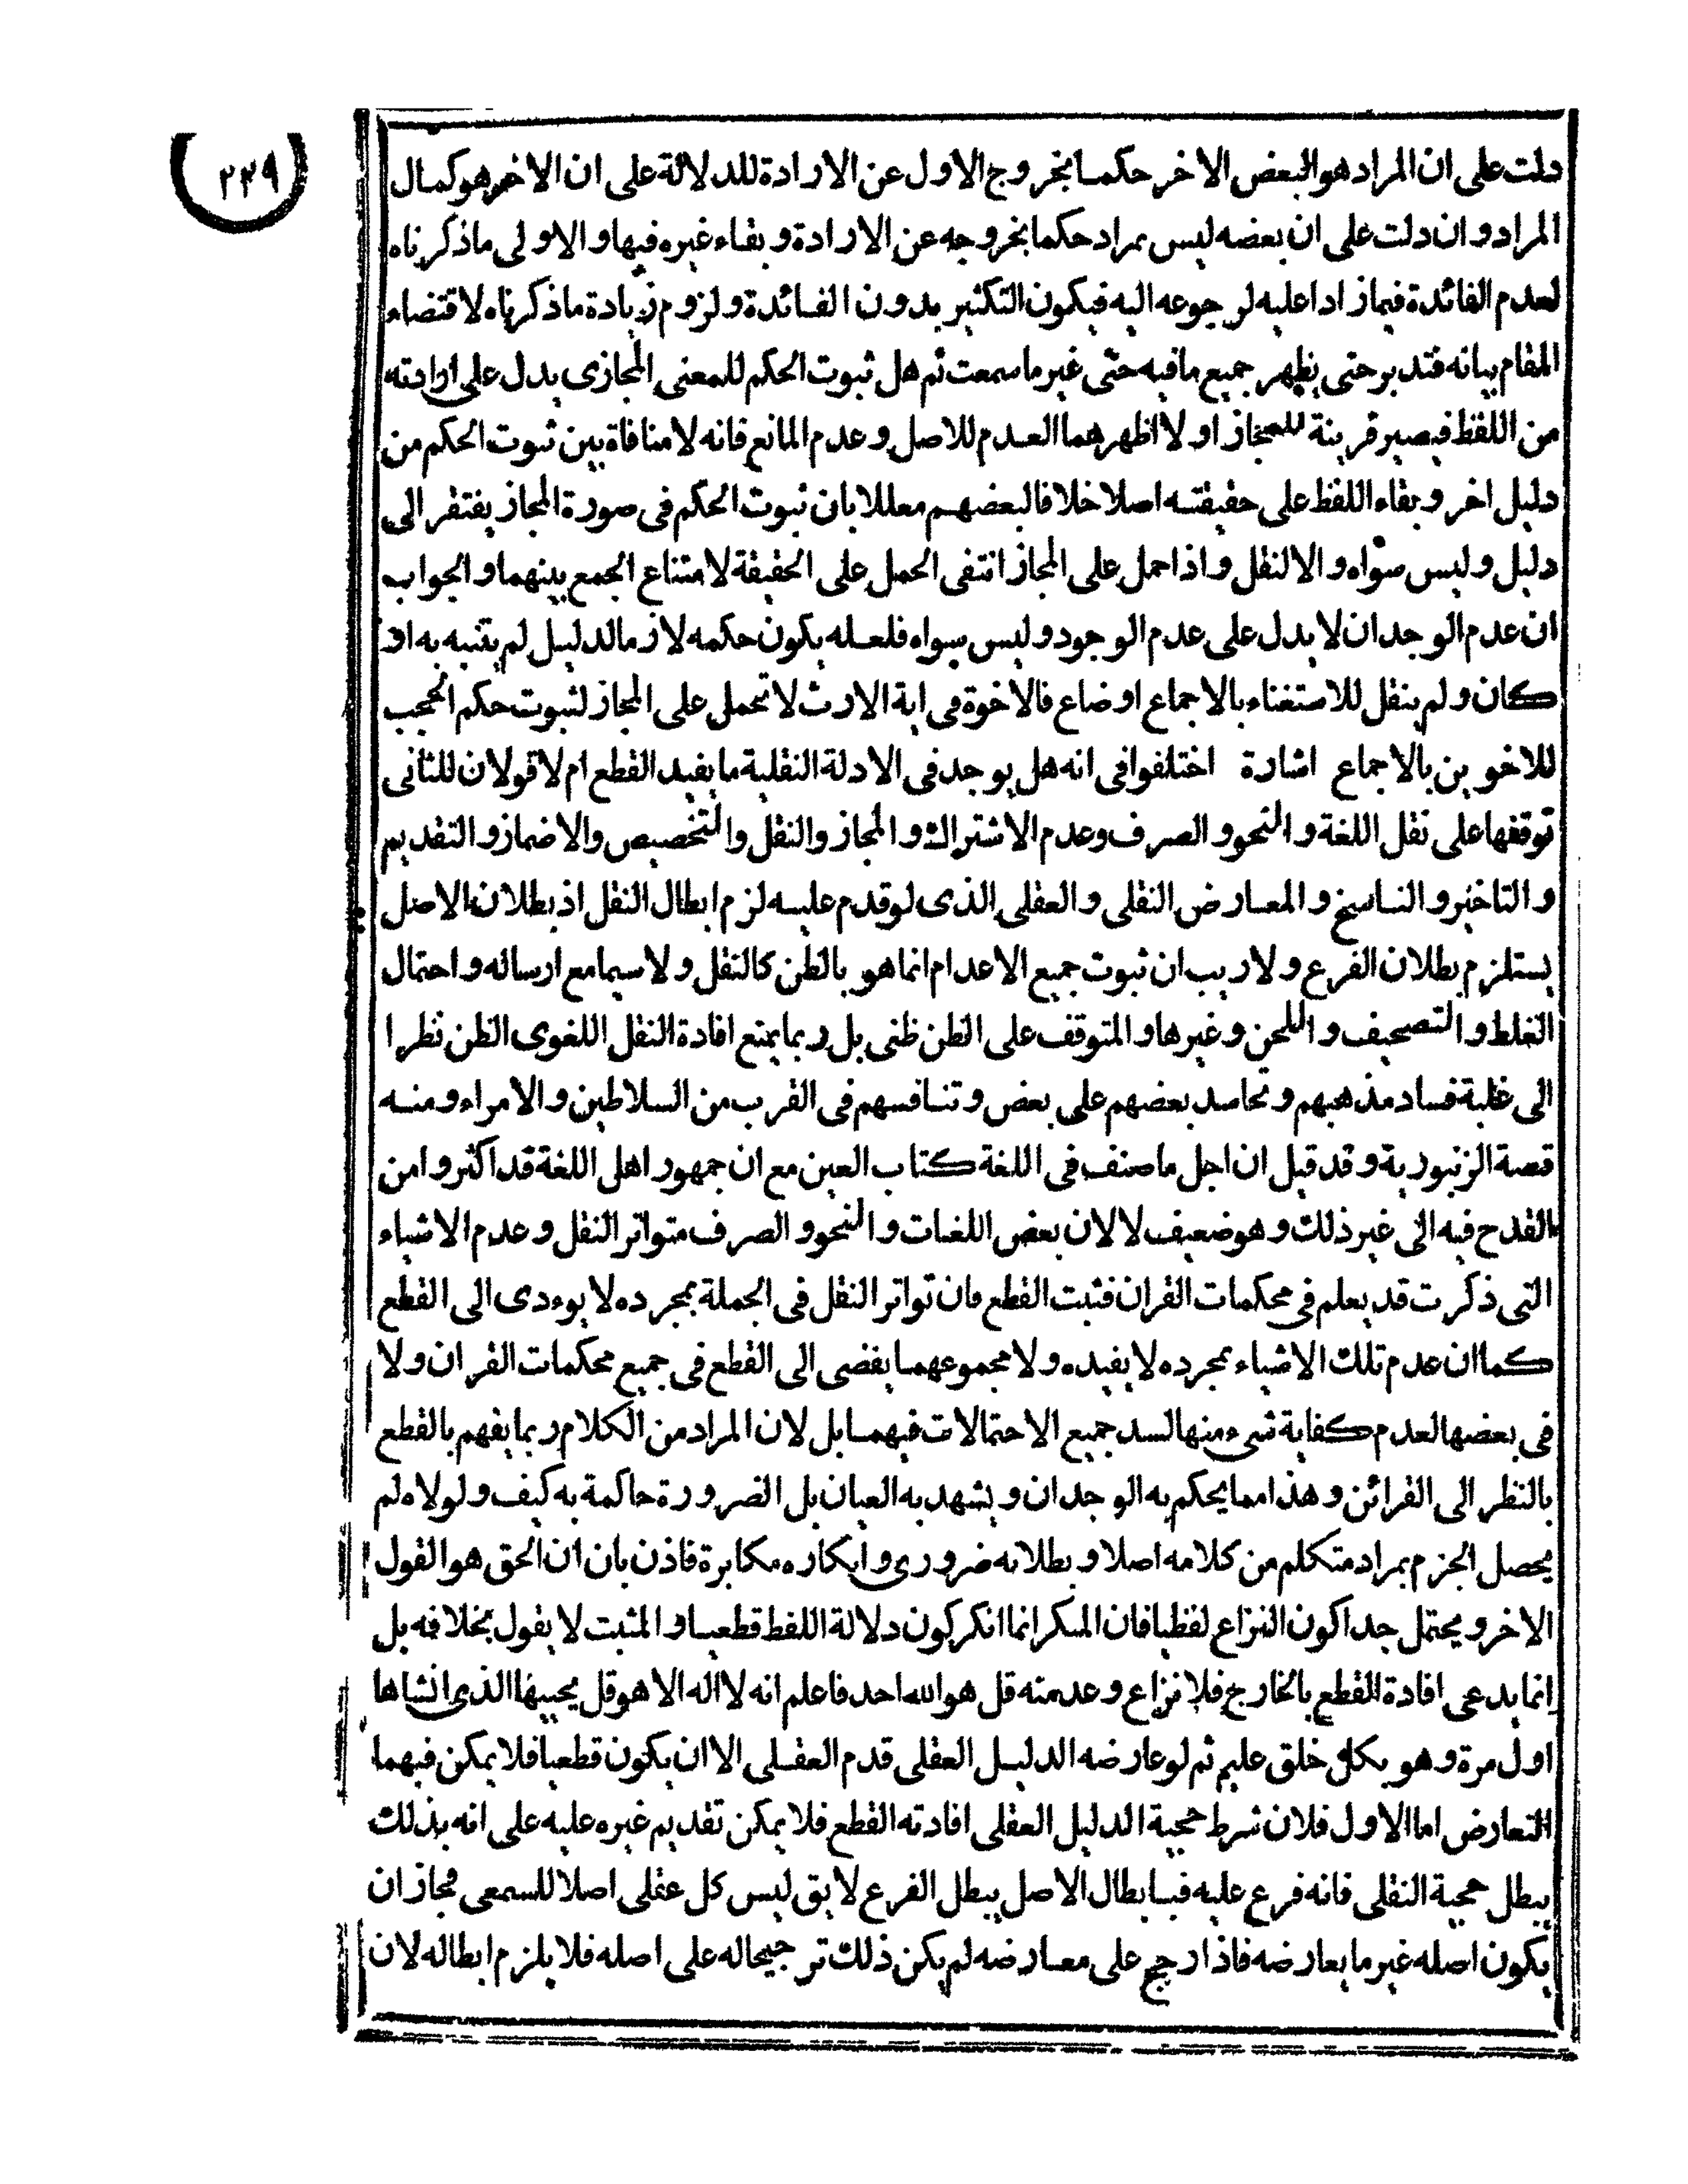 ٢٣٩
دلت على ان المراد هو البعض الاخر حكمـا بخروج الاول عن الارادة للدلالة على ان الاخر هو كمـال
المراد وان دلت على ان بعضه ليس بمراد حكما بخروجه عن الارادة وبقاء غيره فيها والاولى ما ذكرناه
لعدم الفائدة فيما زادا عليه لرجوعه اليه فيكون التكثير بدون الفـائدة ولزوم زيادة ما ذكرناه لاقتضاء
المقام بيانه فتدبر حتى يظهر جميع ما فيه حتى غير ما سمعت ثم هل ثبوت الحكم للمعنى المجازى يدل على ارادته
من اللفظ فيصير قرينة للمجاز اولا اظهرهما العـدم للاصل وعدم المانع فانه لا منافاة بين ثبوت الحكم من
دليل اخر وبقاء اللفظ على حقيقتـه اصلا خلافا لبعضهـم معللا بان ثبوت الحكم فى صورة المجاز يفتقر الى
دليل وليس سواه والا لنقل واذا حمل على المجاز انتفى الحمل على الحقيقة لامتناع الجمع بينهما والجواب
ان عدم الوجدان لا يدل على عدم الوجود وليس سواه فلعـله يكون حكمه لازما لدليل لم يتنبه به او
كان ولم ينقل للاستغناء بالاجماع او ضاع فالاخوة فى اية الارث لا تحمل على المجاز لثبوت حكم الحجب
للاخوين بالاجماع اشارة اختلفوا فى انه هل يوجد فى الادلة النقلية ما يفيد القطع ام لا قولان للثانى
توقفها على نقل اللغة والنحو والصرف وعدم الاشتراك والمجاز والنقل والتخصيص والاضمار والتقديم
والتاخير والنـاسخ والمعـارض النقلى والعقلى الذى لو قدم عليـه لزم ابطال النقل اذ بطلان الاصل
يستلزم بطلان الفرع ولا ريب ان ثبوت جميع الاعدام انما هو بالظن كالنقل ولا سيما مع ارساله واحتمال
الغلط والتصحيف واللحن وغيرها والمتوقف على الظن ظنى بل ربما يمنع افادة النقل اللغوى الظن نظرا
الى غلبة فساد مذهبهم وتحاسد بعضهم على بعض وتنـافسهم فى القرب من السلاطين والامراء ومنـه
قصة الزنبورية وقد قيل ان اجل ما صنف فى اللغة كتاب العين مع ان جمهور اهل اللغة قد اكثروا من
القدح فيه الى غير ذلك وهو ضعيف لا لان بعض اللغـات والنحو والصرف متواتر النقل وعدم الاشياء
التى ذكرت قد يعلم فى محكمات القران فثبت القطع فان تواتر النقل فى الجملة بمجرده لا يوءدى الى القطع
كما ان عدم تلك الاشياء بمجرده لا يفيده ولا مجموعهمـا يفضى الى القطع فى جميع محكمات القران ولا
فى بعضها لعدم كفاية شىء منها لسد جميع الاحتمالات فيهمـا بل لان المراد من الكلام ربما يفهم بالقطع
بالنظر الى القرائن وهذا مما يحكم به الوجدان ويشهد به العيان بل الضرورة حاكمة به كيف ولولاه لم
يحصل الجزم بمراد متكلم من كلامه اصلا وبطلانه ضرورى وانكاره مكابرة فاذن بان ان الحق هو القول
الاخر ويحتمل جدا كون النزاع لفظيا فان المنكر انما انكر كون دلالة اللفظ قطعيـا والمثبت لا يقول بخلافه بل
انما يدعى افادة القطع بالخارج فلا نزاع وعد منه قل هو الله احد فاعلم انه لا اله الا هو قل يحييها الذى انشاها
اول مرة وهو بكل خلق عليم ثم لو عارضه الدليـل العقلى قدم العقـلى الا ان يكون قطعيا فلا يمكن فيهما
التعارض اما الاول فلان شرط حجية الدليل العقلى افادته القطع فلا يمكن تقديم غيره عليه على انه بذلك
يبطل حجية النقلى فانه فرع عليه فبـابطال الاصل يبطل الفرع لا يق ليس كل عقلى اصلا للسمعى فجاز ان
يكون اصله غير ما يعارضه فاذا رجح على معـارضه لم يكن ذلك ترجيحا له على اصله فلا يلزم ابطاله لان